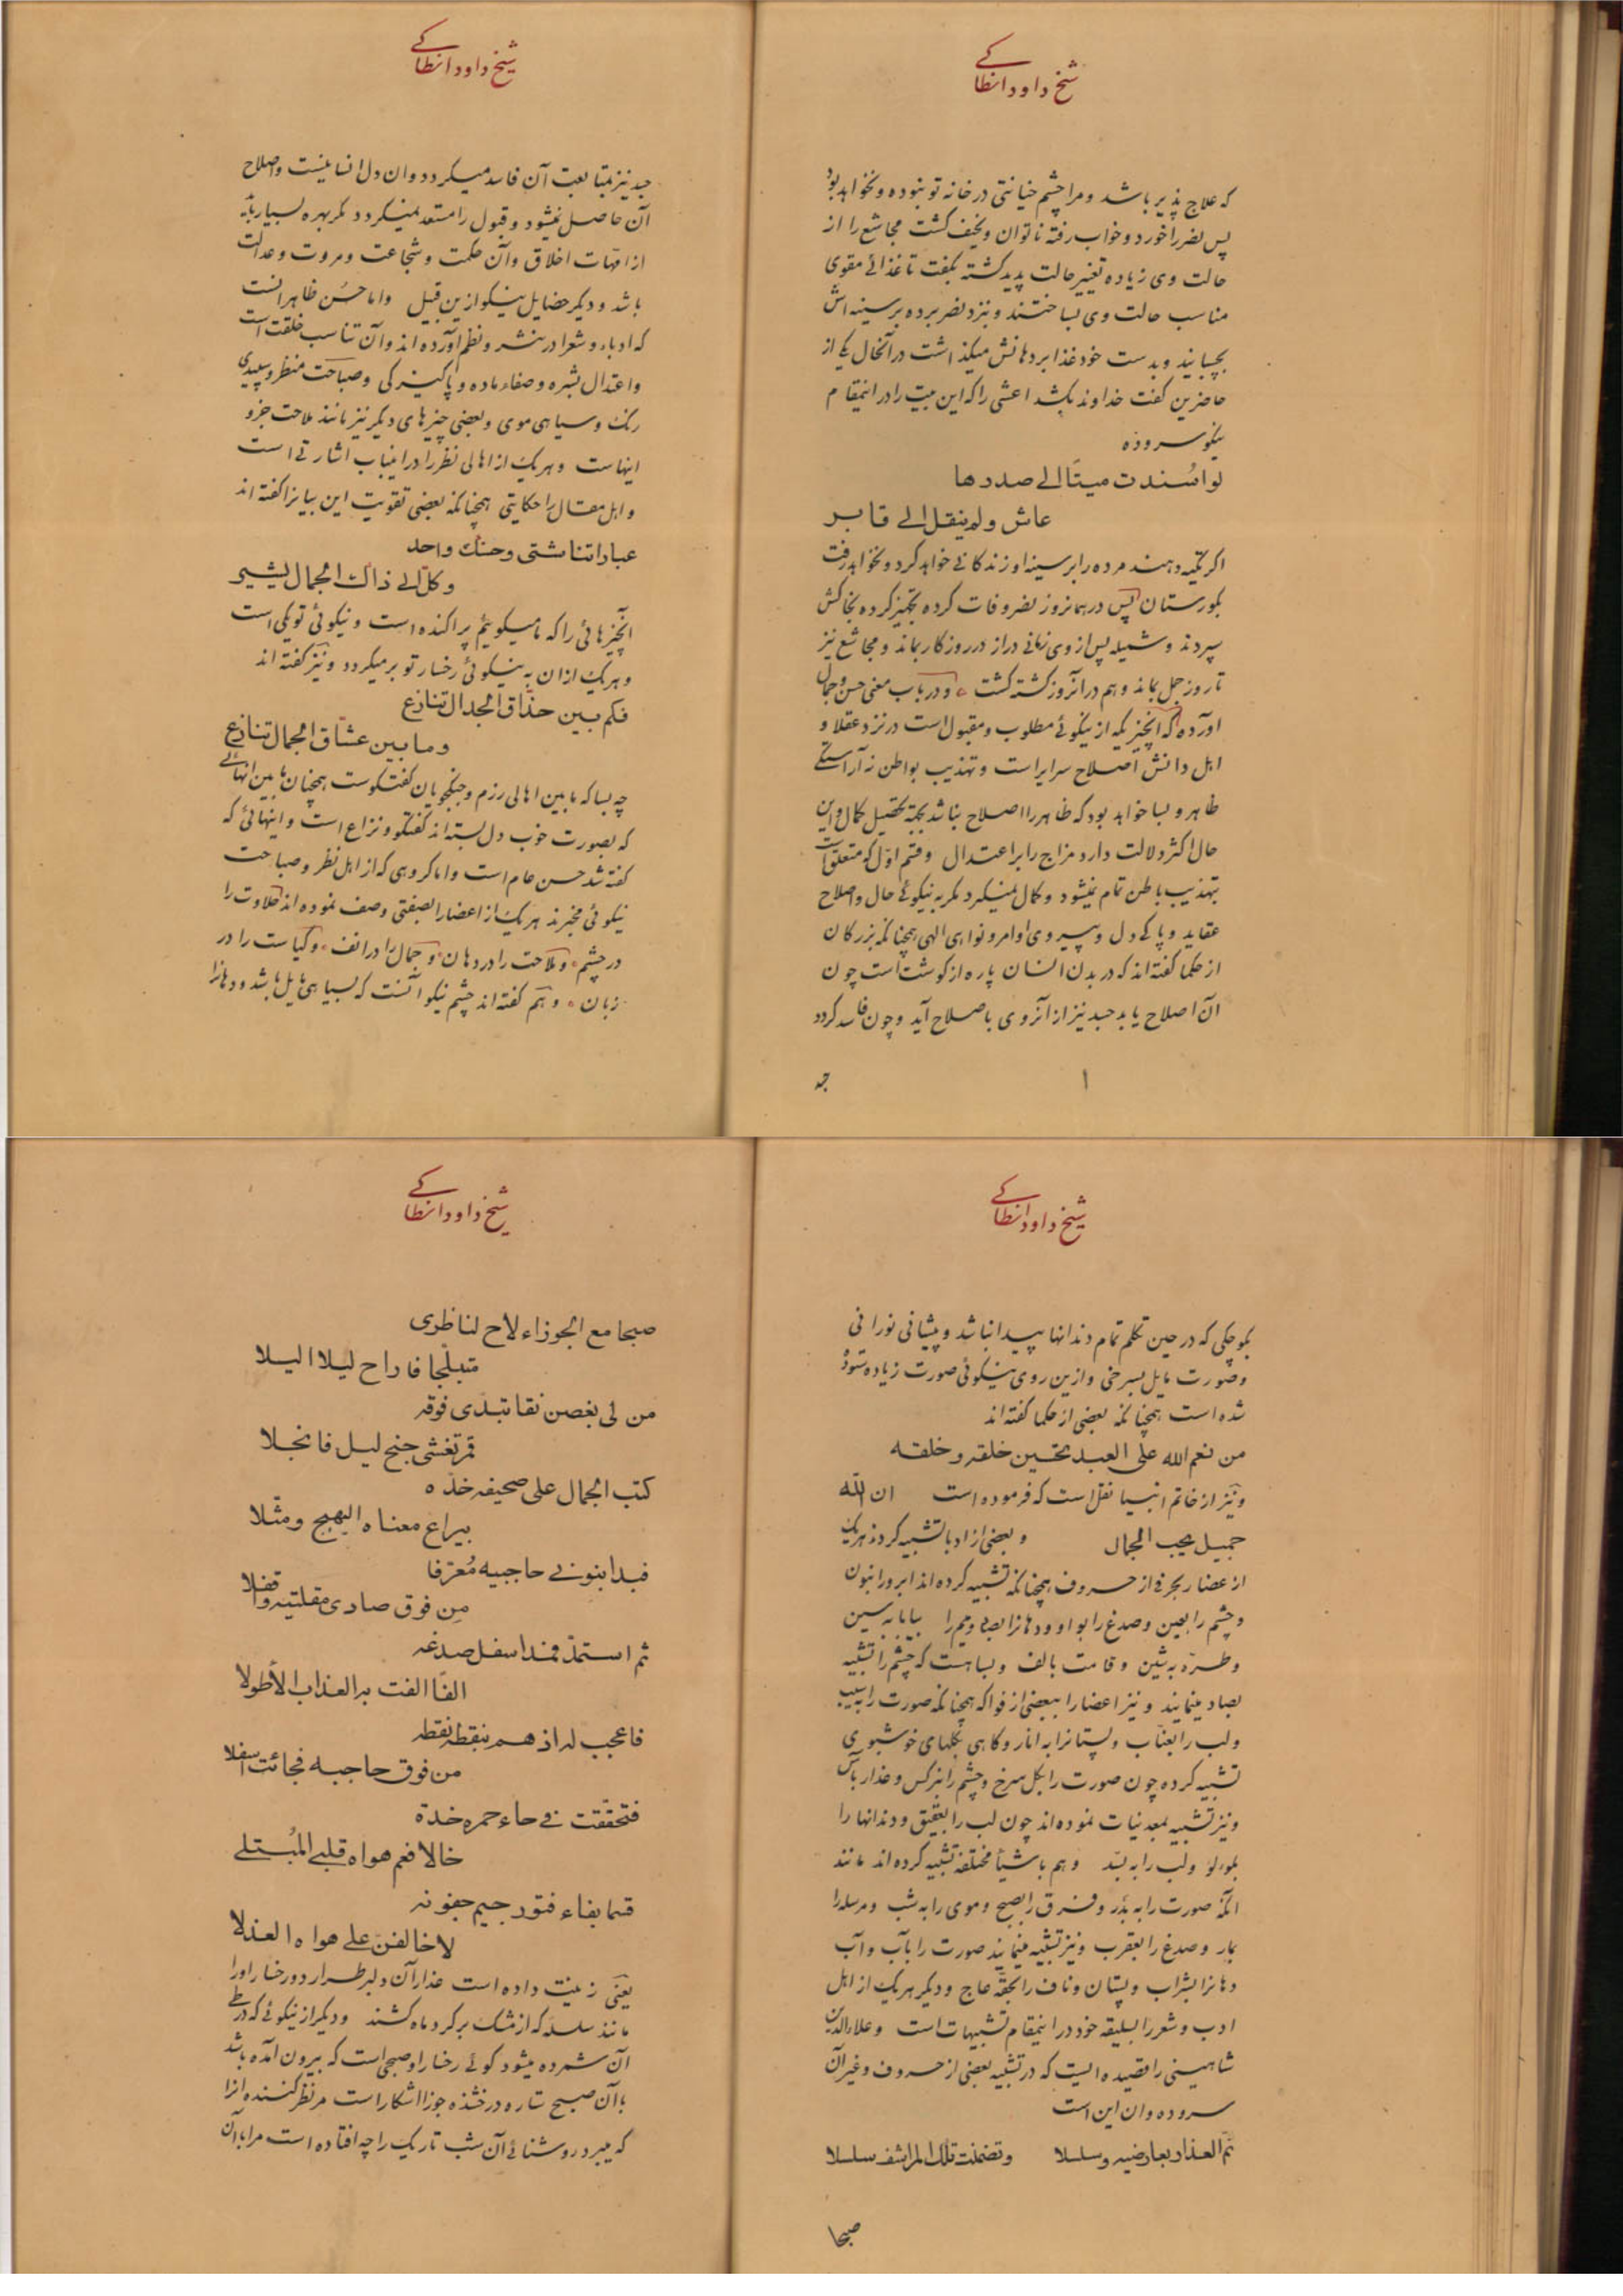 شیخ داود انطاکے
که علاج پذیر باشد و مرا چشم خیانتی در خانه تو نبوده و نخواهد بود
پس نضر را خورد و خواب رفته ناتوان و نحیف گشت مجاشع را از
حالت وی زیاده تغییر حالت پدید گشته بگفت تا غذائے مقوی
مناسب حالت وی بساختند و بنزد نضر برده بر سینه اش
بچسبانید و بدست خود غذا بر دهانش میگذاشت در آنحال یکے از
حاضرین گفت خداوند بکشد اعشی را که این بیت را در اینمقام
نیکو سروده
لو اسندت میتًا الے صدرها
عاش ولم ینقل الے قابر
اگر تکیه دهند مرده را بر سینه او زندگانے خواهد کرد و نخواهد رفت
بگورستان پس در همانروز نضر وفات کرده تجهیز کرده بخاکش
سپردند و شمیله پس از وی زمانی دراز در روزگار بماند و مجاشع نیز
تا روز جمل بماند و هم در آنروز کشته گشت و در باب معنی حسن و جمال
آورده که آنچیزیکه از نیکوئے مطلوب و مقبول است در نزد عقلا و
اهل دانش اصلاح سرایر است و تهذیب بواطن نه آراستگے
ظاهر و بسا خواهد بود که ظاهر را اصلاح بباشد بجهة تحصیل کمال و این
حال اکثر دلالت دارد مزاج را بر اعتدال و قسم اول که متعلق است
بتهذیب باطن تمام نمیشود و کمال نمیگیرد مگر به نیکوئے حال و اصلاح
عقاید و پاکے دل و پیروی اوامر و نواهی الهی همچنانکه بزرگان
از حکما گفته اند که در بدن انسان پاره از گوشت است چون
آن اصلاح یابد جسد نیز از آنروی باصلاح آید و چون فاسد گردد
جـ
شیخ داود انطاکے
جسد نیز بمتابعت آن فاسد میگردد و ان دل انسانیست و اصلاح
آن حاصل نمیشود و قبول را مستعد نمیگردد مگر بهره بسیار یافته
از امهات اخلاق و آن حکمت و شجاعت و مروت و عدالت
باشد و دیگر خصایل نیکو ازین قبیل و اما حسن ظاهر انست
که ادباء و شعرا در نثر و نظم آورده اند و آن تناسب خلقت است
و اعتدال بشره و صفاء ماده و پاکیزگی و صباحت منظر و سپیدی
رنگ و سیاهی موی و بعضی چیزهای دیگر نیز مانند ملاحت جزو
اینهاست و هریک از اهالی نظر را در اینباب اشارتے است
و اهل مقال را حکایتی همچنانکه بعضی تقویت این بیانرا گفته اند
عباراتنا شتی وحسنک واحد
وکل الے ذاک الجمال یشیر
آنچیزهائی را که ما میگوئیم پراکنده است و نیکوئی تو یکی است
و هریک ازان به نیکوئی رخسار تو برمیگردد و نیز گفته اند
فکم بین حذاق الجدال تنازع
وما بین عشاق الجمال تنازع
چه بسا که مابین اهالی رزم و جنگجویان گفتگوست همچنان مابین انهائے
که بصورت خوب دل بسته اند گفتگو و نزاع است و اینهائی که
گفته شد حسن عام است و اما گروهی که از اهل نظر و صباحت
نیکوئی مخبرند هریک از اعضا را بصفتی وصف نموده اند حلاوت را
در چشم و ملاحت را در دهان و جمال را در انف و کیاست را در
زبان و هم گفته اند چشم نیکو آنست که بسیاهی مایل باشد و دهانرا
شیخ داود انطاکے
بکوچکی که در حین تکلم تمام دندانها پیدا نباشد و پیشانی نورانی
و صورت مایل بسرخی و ازین روی نیکوئی صورت زیاده ستوده
شده است همچنانکه بعضی از حکما گفته اند
من نعم الله علی العبد تحسین خلقه وخلقه
و نیز از خاتم انبیا نقل است که فرموده است ان الله
جمیل یحب الجمال و بعضی از ادبا تشبیه کرده هریک
از عضا ر بحرفی از حروف همچنانکه تشبیه کرده اند ابرو را بنون
و چشم را بعین و صدغ را بواو و دهانرا بصاد و میم را بیابا به سین
و طره به شین و قامت بالف و بسا هست که چشم را تشبیه
بصاد مینمایند و نیز اعضا را ببعضی از فواکه همچنانکه صورت را بسیب
و لب را بعناب و پستانرا به انار و گاهی بگلهای خوشبوی
تشبیه کرده چون صورت را بگل سرخ و چشم را بنرگس و عذار بآس
و نیز تشبیه بمعدنیات نموده اند چون لب را بعقیق و دندانها را
بلولو و لب را به بسد و هم باشیأ مختلفه تشبیه کرده اند مانند
انکه صورت را به بدر و فرق را بصبح و موی را به شب و مرسله را
بمار و صدغ را بعقرب و نیز تشبیه مینمایند صورت را بآب و آب
دهانرا بشراب و پستان و ناف را بحقه عاج و دیگر هریک از اهل
ادب و شعر را بسلیقه خود در اینمقام تشبیهات است و علاءالدین
شاهینی را قصیده ایست که در تشبیه بعضی از حروف و غیر آن
سروده و ان این است
نم العذار بعارضیه وسلسلا وتضمنت تلک المراشف سلسلا
صبحا
شیخ داود انطاکے
صبحا مع الجوزاء لاح لناظری
متبلجا فازاح لیلا الیلا
من لی بغصن نقا تبدی فوقه
قمر تغشی جنح لیل فانجلا
کتب الجمال علی صحیفه خده
بیراع معناه البهیج ومثلا
فبدا بنونے حاجبیه مُعرّفا
مِن فوق صادی مقلتیه واقفلا
ثم استمد فمد اسفل صدغه
الفًا الفت به العذاب الأطولا
فاعجب له اذ هم بنقطه نقطه
من فوق حاجبه فجائت اسفلا
فتحققت فی حاء حمره خده
خالا فعم هواه قلبی المُبتلے
قسما بفاء فتور جیم جفونه
لاخالفن علے هواه العذلا
یعنی زینت داده است عذار آن دلبر طرار دو رخسار او را
مانند سلسله که از مشک بر گرد ماه کشند و دیگر از نیکوئے که در طے
آن شمرده میشود گوئے رخسار او صبحی است که بیرون آمده باشد
با آن صبح ستاره درخشنده جوزا اشکار است مر نظر کننده انرا
که میبرد روشنائے آن شب تاریک را چه افتاده است مرا با آن